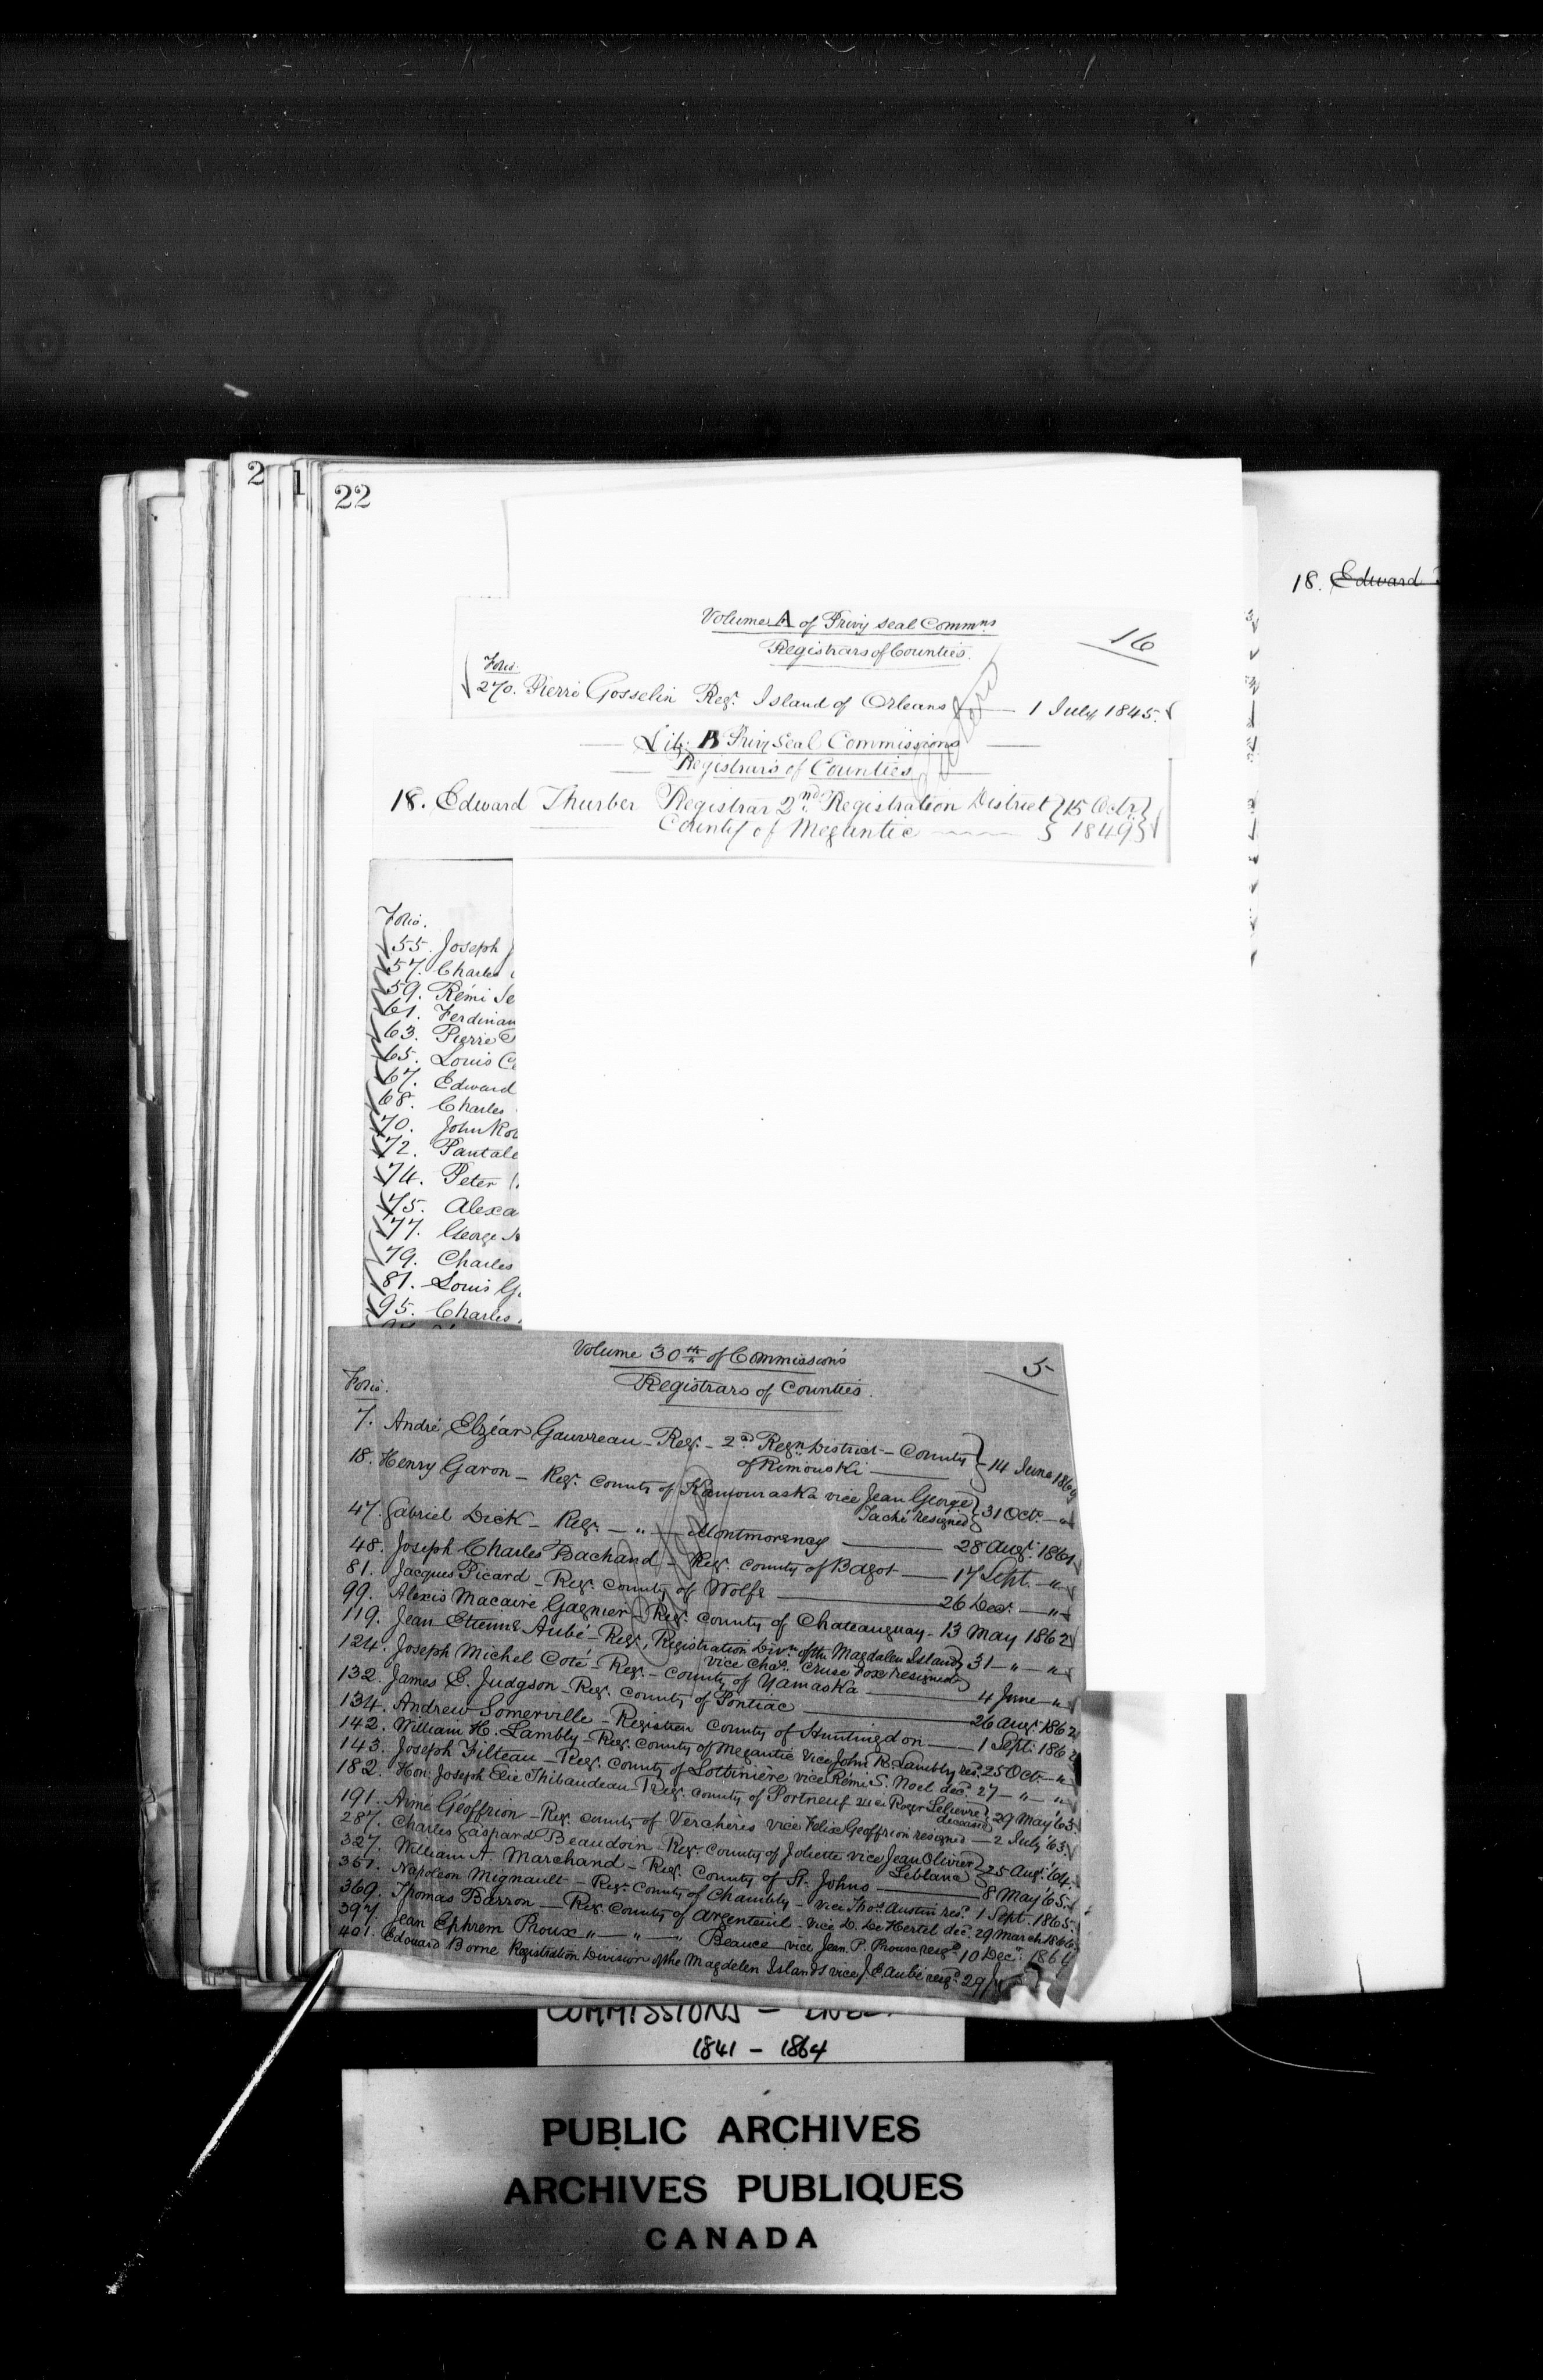 2
1
22
18. Edward
Volume A of Privy Seal Commns
Registrars of Counties.
16
Folio.
270. Pierre Gosselin Regr. Island of Orleans — 1 July 1845.
Lib. B Privy Seal Commissions
Registrars of Counties
18. Edward Thurber Registrar 2nd Registration District } 15 Octr. }
County of Megantic } 1849 }
Folio.
55. Joseph
57. Charles
59. Rémi Se
61. Ferdinan
63. Pierre
65. Louis
67. Edward
68. Charles
70. John Rob
72. Pantale
74. Peter
75. Alexa
77. George
79. Charles
81. Louis G
95. Charles
Volume 30th of Commissions
5
Registrars of Counties.
Folio.
7. André Elzéar Gauvreau - Regr. - 2d Regn. District - County } 14 June 186
of Rimouski —
18. Henry Garon - Regr. County of Kamouraska vice Jean George } 31 Octr. — "
Taché resigned }
47. Gabriel Dick - Regr. — " — Montmorency — 28 Augt. 1861
48. Joseph Charles Bachand - Regr. County of Bagot — 17 Sept. — "
81. Jacques Picard - Regr. County of Wolfe — 26 Decr. — "
99. Alexis Macaire Gagnier - Regr. County of Chateauguay - 13 May 1862
119. Jean Etienne Aubé - Regr., Registration Divn. of the Magdalen Islands } 31 — " — "
vice Chas. Cruse Fox resigned }
124. Joseph Michel Coté - Regr. - County of Yamaska — 4 June — "
132. James E. Judgson - Regr. County of Pontiac — 26 Augt. 1862
134. Andrew Somerville - Registrar County of Huntingdon — 1 Sept. 1862
142. William H. Lambly - Regr. County of Megantic vice John R. Lambly res. 25 Oct. — "
143. Joseph Filteau - Regr. County of Lotbinière vice Rémi S. Noel dec. 27 — " — "
182. Hon. Joseph Elie Thibaudeau - Regr. County of Portneuf vice Roger Lelievre } 29 May '63.
deceased
191. Aimé Géoffrion - Regr. County of Verchères vice Felix Geoffrion resigned — 2 July '63.
287. Charles Gaspard Beaudoin - Regr. County of Joliette vice Jean Olivier } 25 Augt. '64.
Leblanc }
327. William A. Marchand - Regr. County of St. Johns — 8 May '65.
351. Napoleon Mignault - Regr. County of Chambly - vice Thos. Austin res. 1 Sept. 1865.
369. Thomas Barron — Regr. County of Argenteuil - vice D. De Hertel dec. 29 March 1866
397. Jean Ephrem Proux " — " — " Beauce vice Jean P. Proux resd. 10 Decr. 186
401. Edouard Borne Registration Division of the Magdelen Islands vice J. E. Aubé resd. 29
COMMISSIONS -
1841 - 1864
PUBLIC ARCHIVES
ARCHIVES PUBLIQUES
CANADA